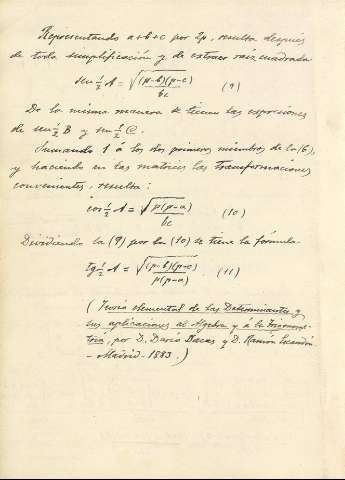 Representando a+b+c por 2p, resulta después
de toda simplificación y de extraer raíz cuadrada
sen ½ A = √((p-b)(p-c)/bc) (9)
De la misma manera se tienen las expresiones
de sen ½ B y sen ½ C.
Sumando 1 á los dos primeros miembros de la (6),
y haciendo en las matrices las transformaciones
convenientes, resulta:
cos ½ A = √(p(p-a)/bc) (10)
Dividiendo la (9) por la (10) se tiene la fórmula
tg ½ A = √((p-b)(p-c)/p(p-a)) . (11)
(Teoría elemental de las Determinantes y
sus aplicaciones al Algebra y á la Trigonome-
tria, por D. Darío Bacas y D. Ramón Escandón
- Madrid - 1883.)